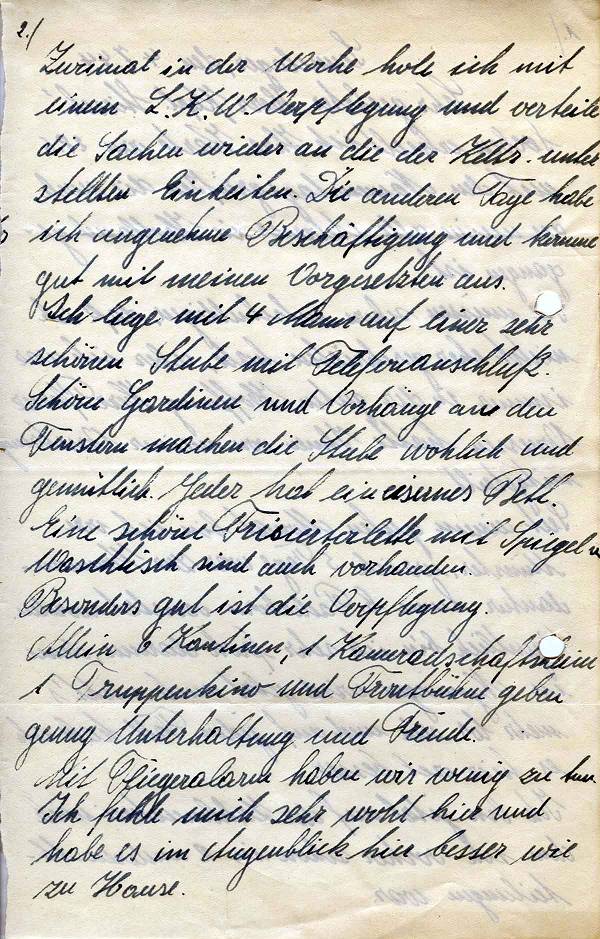 2./
Zweimal in der Woche hole ich mit
einem L.K.W. Verpflegung und verteile
die Sachen wieder an die der Kdtr. unter
stellten Einheiten. Die anderen Tage habe
ich angenehme Beschäftigung und komme
gut mit meinen Vorgesetzten aus.
Ich liege mit 4 Mann auf einer sehr
schönen Stube mit Telefonanschluß.
Schöne Gardinen und Vorhänge an den
Fenstern machen die Stube wohlich und
gemütlich. Jeder hat ein eisernes Bett.
Eine schöne Frisiertoilette mit Spiegel u
Waschtisch sind auch vorhanden.
Besonders gut ist die Verpflegung.
Allein 6 Kantinen, 1 Kameradschaftsheim
1 Truppenkino und Frontbühne geben
genug Unterhaltung und Freude.
Mit Fliegeralarm haben wir wenig zu tun
Ich fühle mich sehr wohl hier und
habe es im Augenblick hier besser wie
zu Hause.